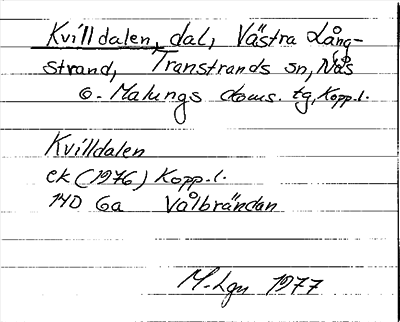 Kvilldalen, dal, Västra Lång-
strand, Transtrands sn, Nås
o. Malungs doms. tg, Kopp.l.
Kvilldalen
ek (1976) Kopp.l.
14D 6a Vålbrändan
M-Lgn 1977